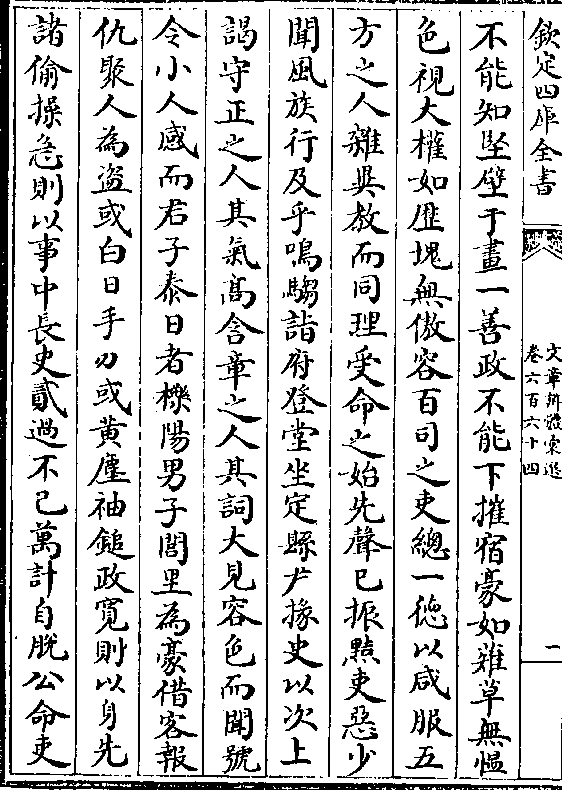 欽定四庫全書
文章辨體彚選
卷六百六十四
一
不能知堅壁于畫一善政不能下摧宿豪如薙草無愠
色視大權如歷塊無傲容百司之吏總一徳以咸服五
方之人雜異教而同理受命之始先聲已振黠吏惡少
聞風族行及乎鳴騶詣府登堂坐定縣尹掾史以次上
謁守正之人其氣髙含章之人其詞大見容色而聞號
令小人慼而君子泰日者櫟陽男子閭里為豪借客報
仇聚人為盜或白日手刃或黄塵袖鎚政寛則以身先
諸偷操急則以事中長吏貳過不已萬計自脱公命吏